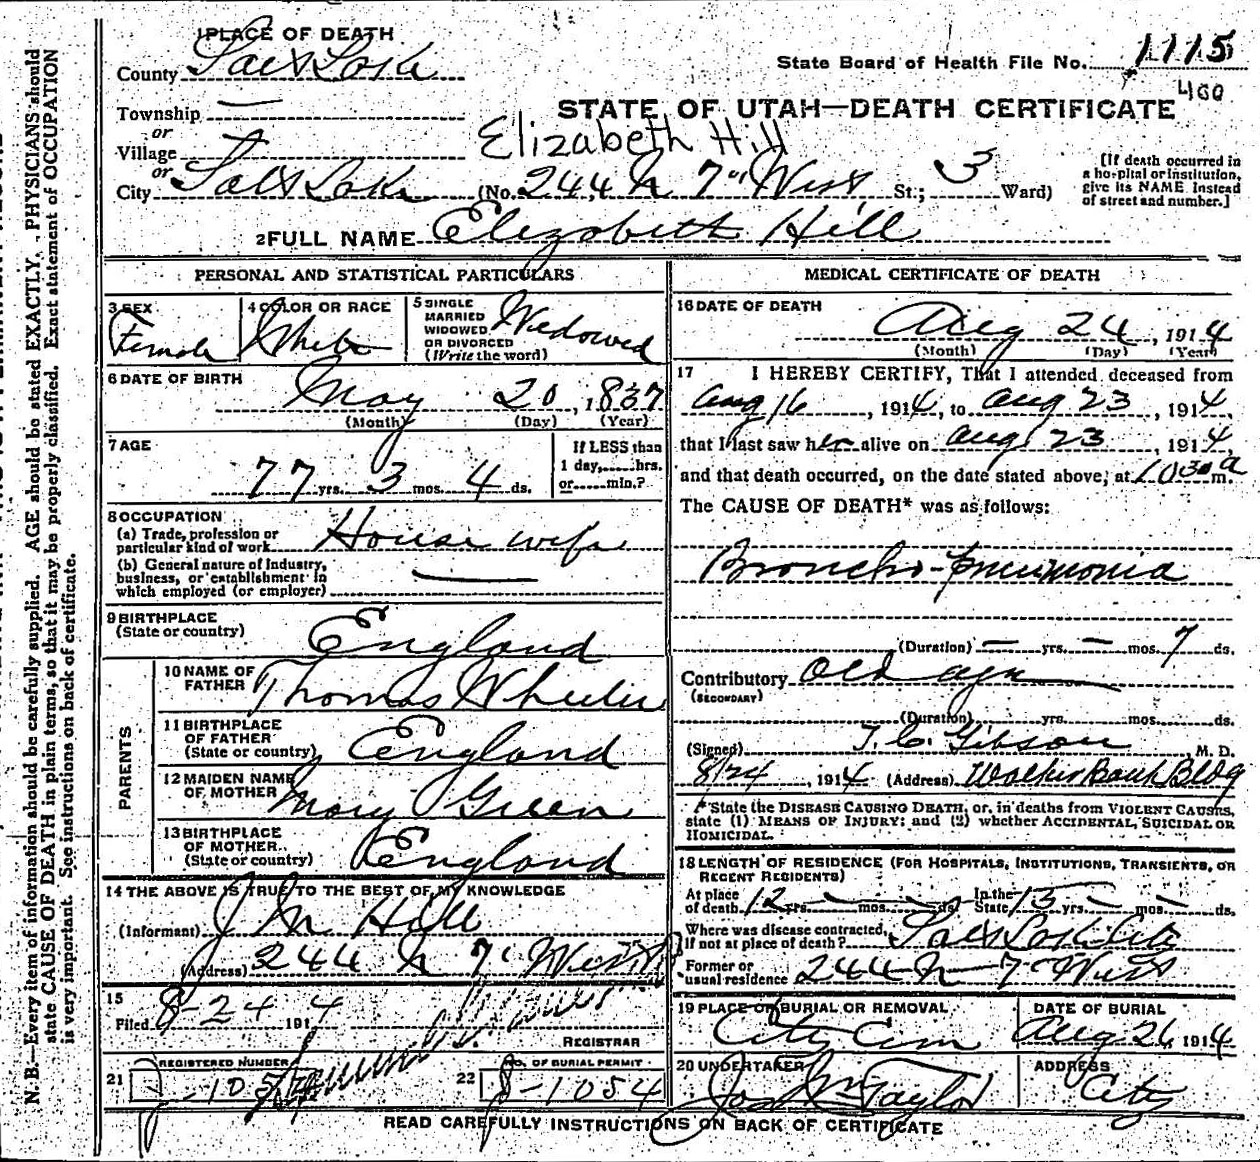 1 PLACE OF DEATH
County Salt Lake
State Board of Health File No. 1115
400
Township —
or
STATE OF UTAH—DEATH CERTIFICATE
Village
or
Elizabeth Hill
City Salt Lake (No. 244 N 7" West St.; 3 Ward)
[If death occurred in
a hospital or institution,
give its NAME instead
of street and number.]
2 FULL NAME Elizabeth Hill
PERSONAL AND STATISTICAL PARTICULARS
3 SEX
Female
4 COLOR OR RACE
White
5 SINGLE
MARRIED
WIDOWED
OR DIVORCED
(Write the word)
Widowed
6 DATE OF BIRTH
May 20, 1837
(Month) (Day) (Year)
7 AGE
77 yrs. 3 mos. 4 ds.
If LESS than
1 day, hrs.
or min.?
8 OCCUPATION
(a) Trade, profession or
particular kind of work House wife
(b) General nature of industry,
business, or establishment in
which employed (or employer) —
9 BIRTHPLACE
(State or country)
England
PARENTS
10 NAME OF
FATHER
Thomas Wheeler
11 BIRTHPLACE
OF FATHER
(State or country)
England
12 MAIDEN NAME
OF MOTHER
Mary Green
13 BIRTHPLACE
OF MOTHER
(State or country)
England
14 THE ABOVE IS TRUE TO THE BEST OF MY KNOWLEDGE
(Informant) J M Hill
(Address) 244 N 7" West
15
Filed 8-24 1914
REGISTRAR
21 REGISTERED NUMBER
22 NO. OF BURIAL PERMIT
8-1054
MEDICAL CERTIFICATE OF DEATH
16 DATE OF DEATH
Aug 24, 1914
(Month) (Day) (Year)
17 I HEREBY CERTIFY, That I attended deceased from
Aug 16, 1914, to Aug 23, 1914,
that I last saw her alive on Aug 23, 1914,
and that death occurred, on the date stated above, at 1030 a m.
The CAUSE OF DEATH* was as follows:
Broncho-pneumonia
(Duration) — yrs. — mos. 7 ds.
Contributory Old age
(SECONDARY)
(Duration) yrs. mos. ds.
(Signed) T. C. Gibson M. D.
8/24, 1914 (Address) Walker Bank Bldg
*State the DISEASE CAUSING DEATH, or, in deaths from VIOLENT CAUSES,
state (1) MEANS OF INJURY; and (2) whether ACCIDENTAL, SUICIDAL OR
HOMICIDAL.
18 LENGTH OF RESIDENCE (FOR HOSPITALS, INSTITUTIONS, TRANSIENTS, OR
RECENT RESIDENTS)
At place
of death 12 yrs. — mos. — ds.
In the
State 13 yrs. — mos. — ds.
Where was disease contracted,
if not at place of death? Salt Lake City
Former or
usual residence 244 N 7" West
19 PLACE OF BURIAL OR REMOVAL
City Cem
DATE OF BURIAL
Aug 26 1914
20 UNDERTAKER
Jos Wm Taylor
ADDRESS
City
READ CAREFULLY INSTRUCTIONS ON BACK OF CERTIFICATE
N. B.—Every item of information should be carefully supplied. AGE should be stated EXACTLY. PHYSICIANS should
state CAUSE OF DEATH in plain terms, so that it may be properly classified. Exact statement of OCCUPATION
is very important. See instructions on back of certificate.